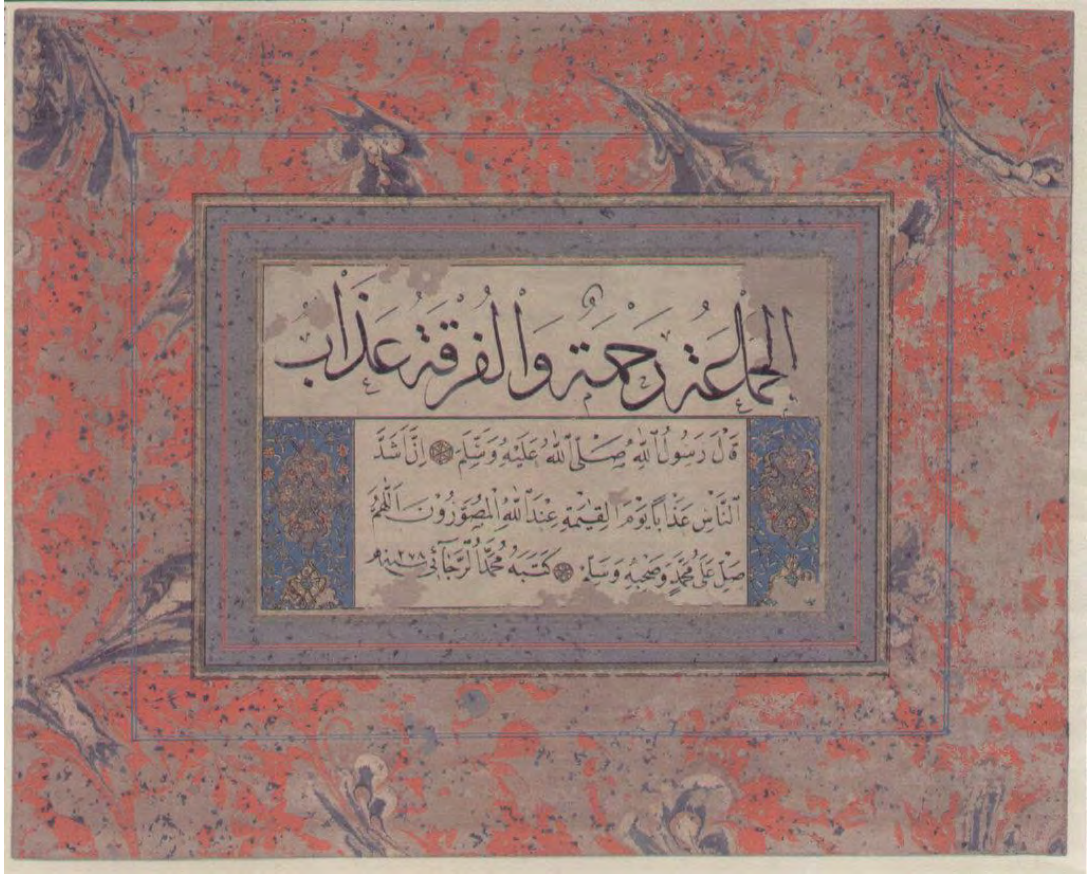 الجماعة رحمة والفرقة عذاب
قَالَ رَسُولُ اللّٰهِ صَلَّى اللّٰهُ عَلَيْهِ وَسَلَّمَ اِنَّ اَشَدَّ
النَّاسِ عَذَابًا يَوْمَ القِيٰمَةِ عِنْدَ اللّٰهِ الْمُصَوِّرُونَ اَللّٰهُمَّ
صَلِّ عَلَى مُحَمَّدٍ وَصَحْبِهِ وَسَلِّمْ كَتَبَهُ مُحَمَّد الرَّجَائِي ١٢٧٨